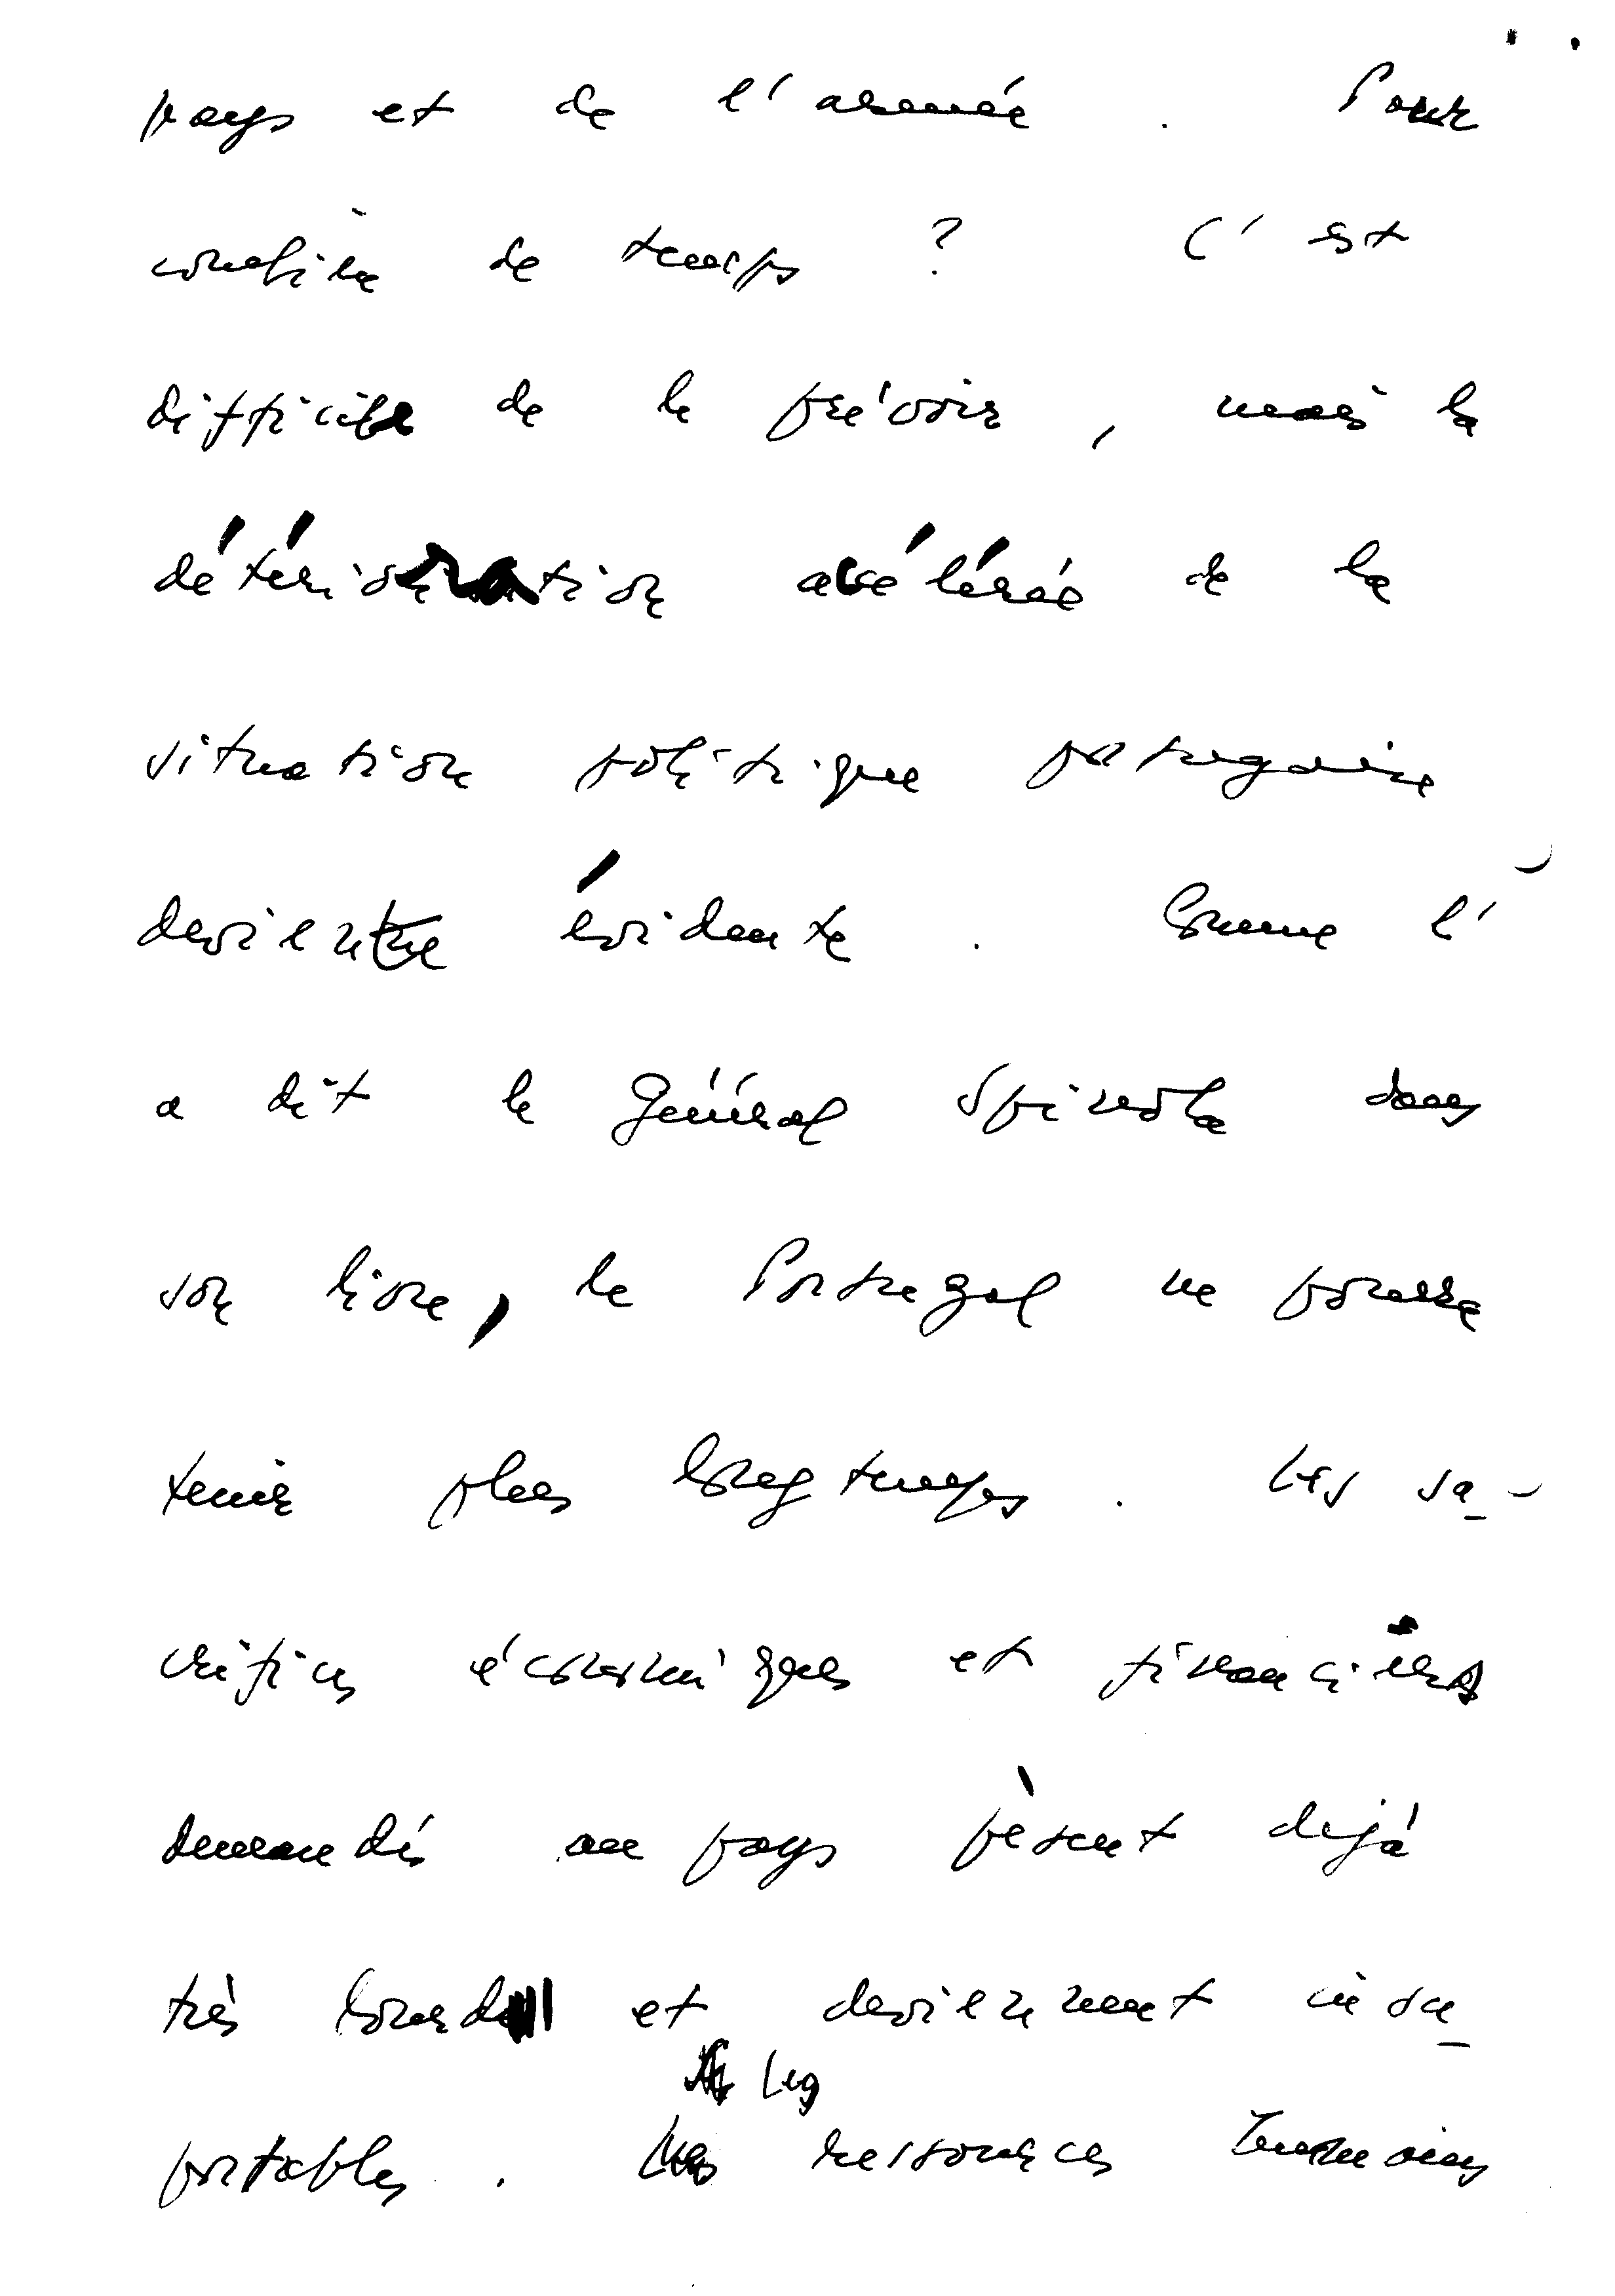 pays et de l'armée. Pour
combien de temps ? C'est
difficile de le prévoir, mais la
détérioration accélérée de la
situation politique portugaise
devient évidente. Comme l'
a dit le Général Spinola dans
son livre, le Portugal ne pourra
tenir plus longtemps. Les sa-
crifices économiques et financiers
demandés au pays pèsent déjà
très lourd et deviennent insu
les
portables. ressources humaines